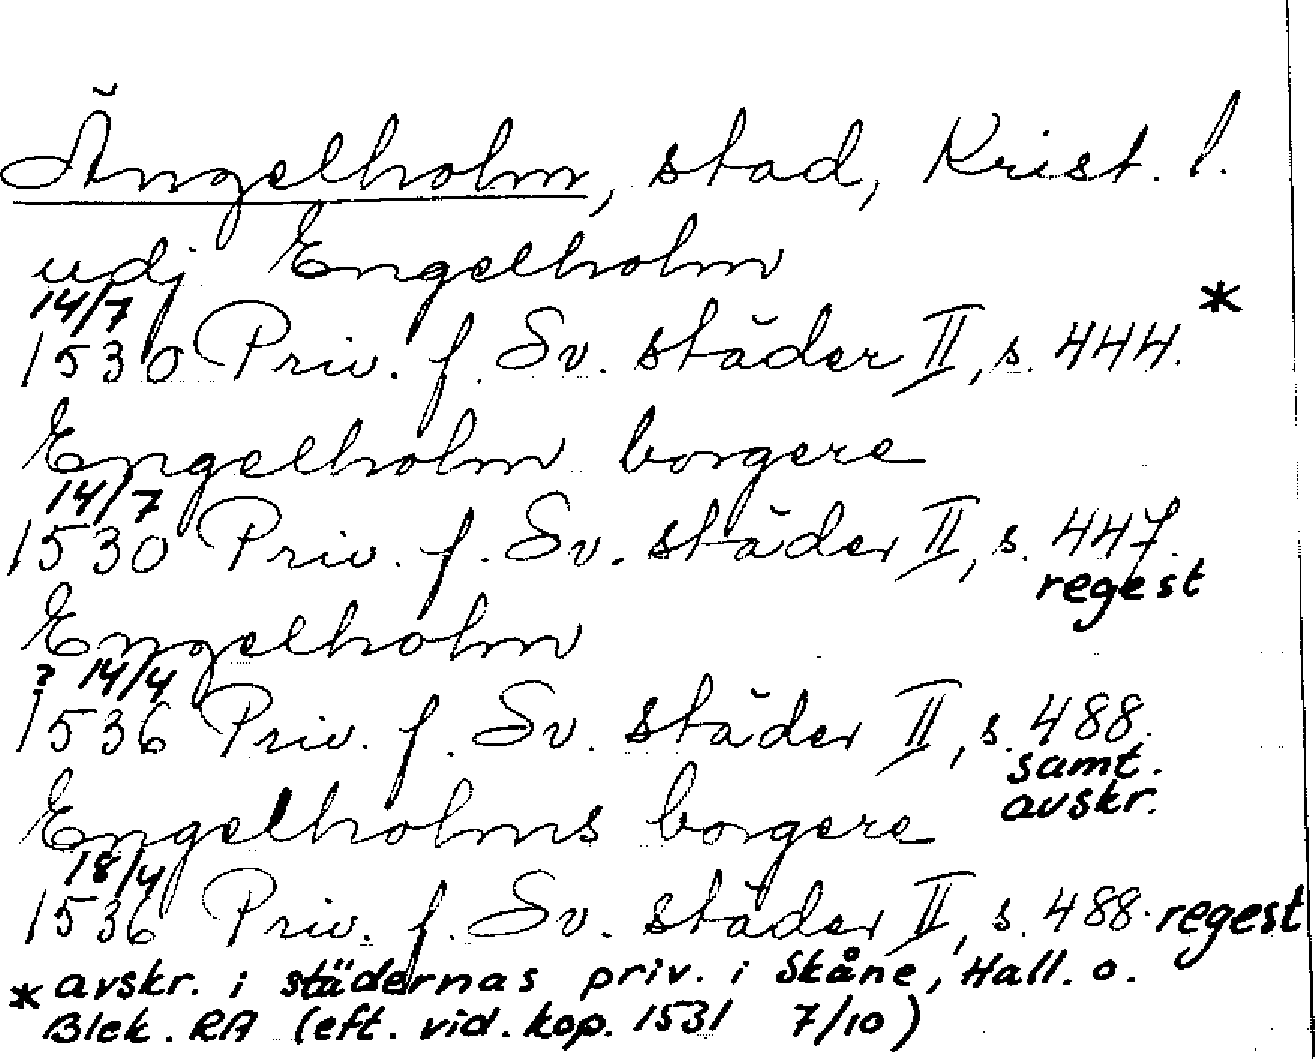 Ängelholm, stad, Krist. l.
udj Engelholm
14/7
1530 Priv. f. Sv. städer II, s. 444. *
Engelholm borgere
14/7
1530 Priv. f. Sv. städer II, s. 447.
regest
Engelholm
? 14/4
1536 Priv. f. Sv. städer II, s. 488.
samt.
avskr.
Engelholms borgere
18/4
1536 Priv. f. Sv. städer II, s. 488. regest
* avskr. i städernas priv. i Skåne, Hall. o.
Blek. RA (eft. vid. kop. 1531 7/10)